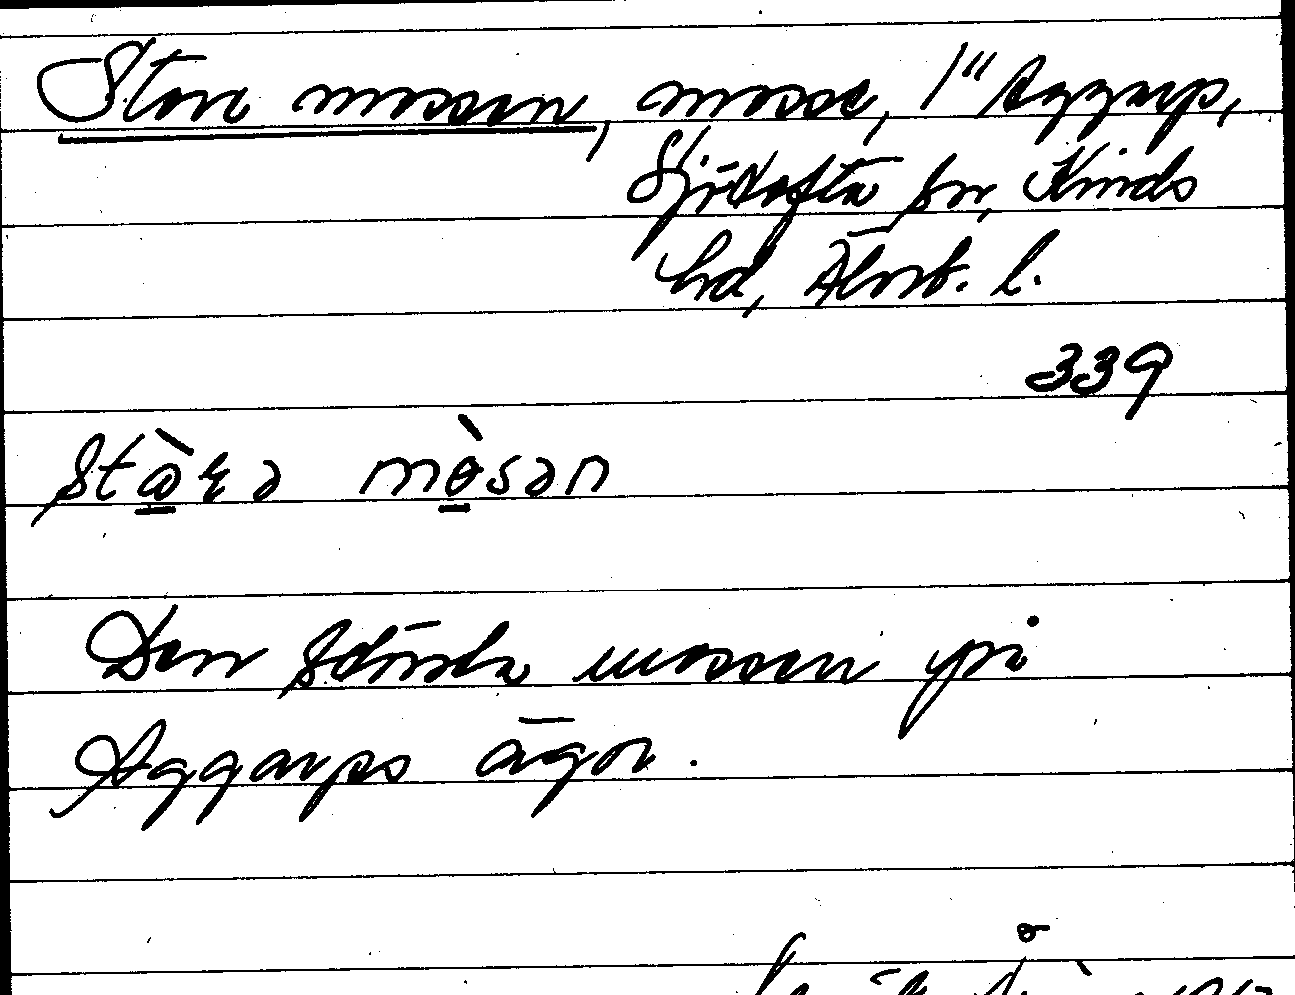 Stora mossen, mosse, 1" Aggarp,
Sjötofta sn, Kinds
hd, Älvsb. l.
339
mosən
Den största mossen på
Aggarps ägor.